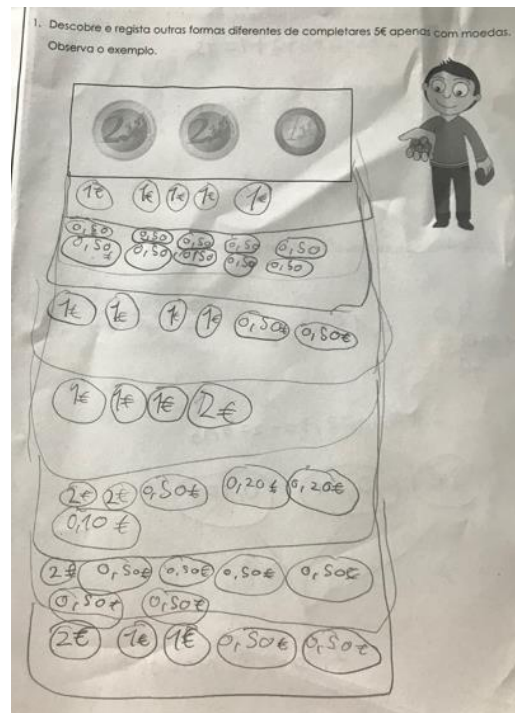 1. Descobre e regista outras formas diferentes de completares 5€ apenas com moedas.
Observa o exemplo.
2 2 1
1€ 1€ 1€ 1€ 1€
0,50 0,50 0,50 0,50 0,50
0,50 € 0,50 0,50 0,50 0,50
1€ 1€ 1€ 1€ 0,50€ 0,50€
1€ 1€ 1€ 2€
2€ 2€ 0,50€ 0,20€ 0,20€
0,10€
2€ 0,50€ 0,50€ 0,50€ 0,50€
0,50€ 0,50€
2€ 1€ 1€ 0,50€ 0,50€